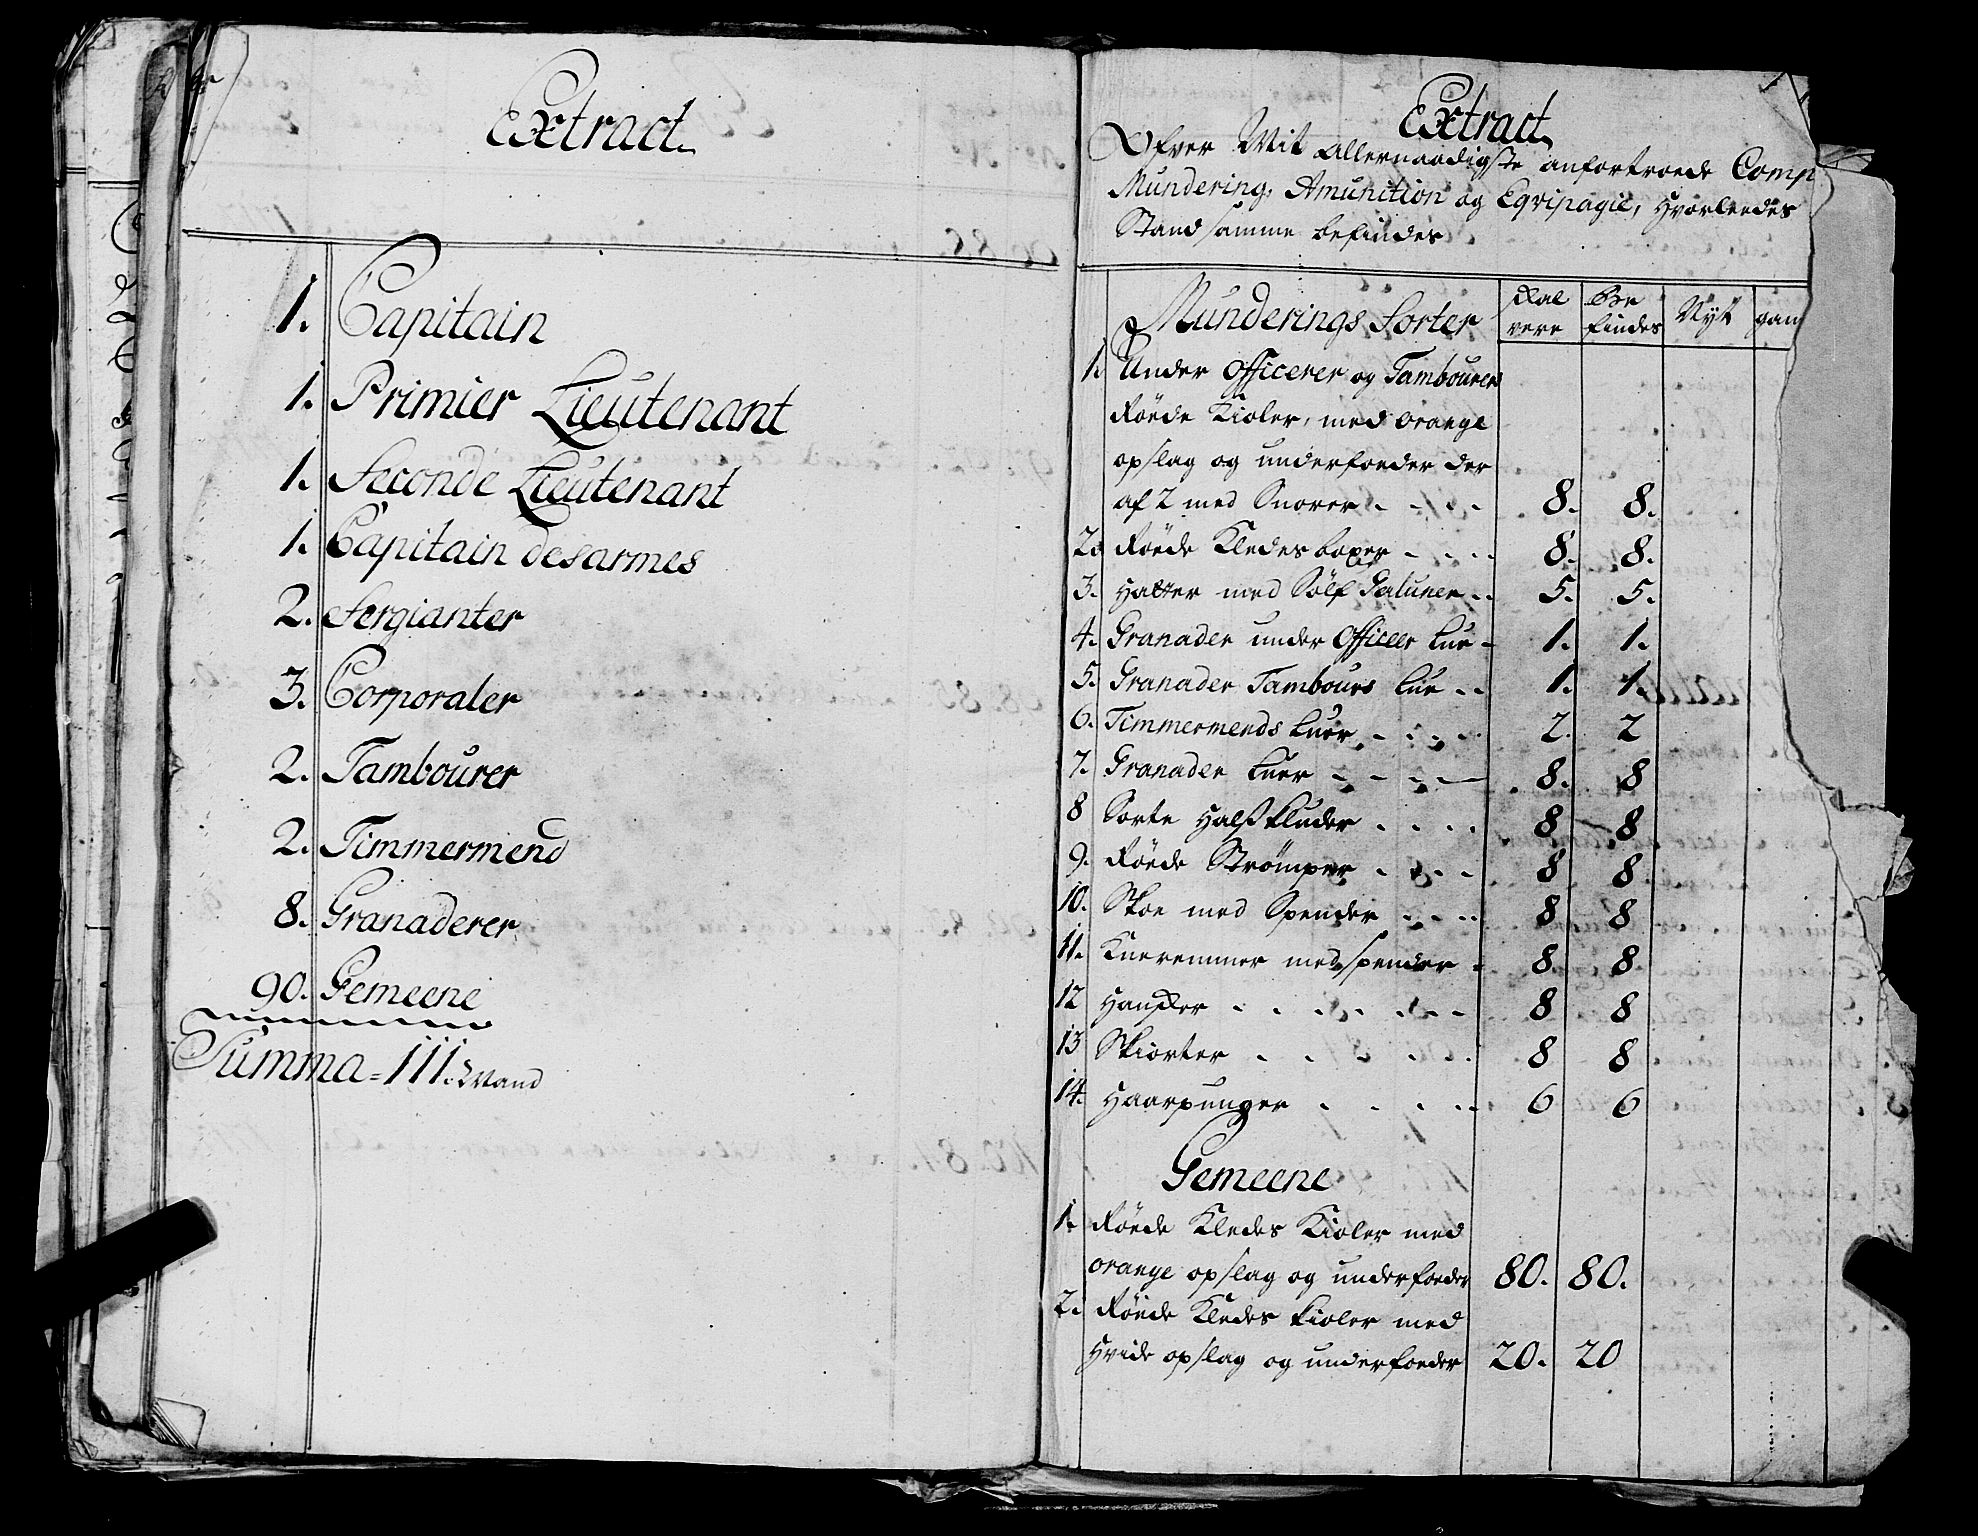 Extract
1. Capitain
1. Primier Lieutenant
1. Seconde Lieutenant
1. Capitain desarmes
2. Sergianter
3. Corporaler
2. Tambourer
2. Timmermend
8. Granaderer
90. Gemeene
Summa = 111. Mand
Extract
Ofver Mit allernaadigste anfortroede Comp
Mundering, Amunition og Eqvipagie, Hvorleedes
Stand samme befindes
Munderings Sorter | Skal vere | Be findes | Nyt | gam
1. Under Officerer og Tambourer
Röede Kioler, med orange
opslag og underfoeder der
af 2 med Snorer - - - - 8. 8.
2. Röede Kledes boxer - - - - 8. 8.
3. Hatter med Sölf Galuner - - 5. 5.
4. Granader under Officeer Lue - 1. 1.
5. Granader Tambours Lue - - 1. 1.
6. Timmermends Luer - - - - 2. 2
7. Granader Luer - - - - 8. 8
8 Sorte Halskluder - - - - 8 8
9. Röede Strömper - - - - 8 8
10. Skoe med Spender - - - - 8 8
11. Kneremmer med spender - 8 8
12 Handsker - - - - - - 8 8
13 Skiorter - - - - - 8 8
14. Haarpunger - - - - - 6 6
Gemeene
1. Röede Kledes Kioler med
orange opslag og underfoeder 80. 80.
2. Röede Kledes Kioler med
Hvide opslag og underfoeder 20. 20